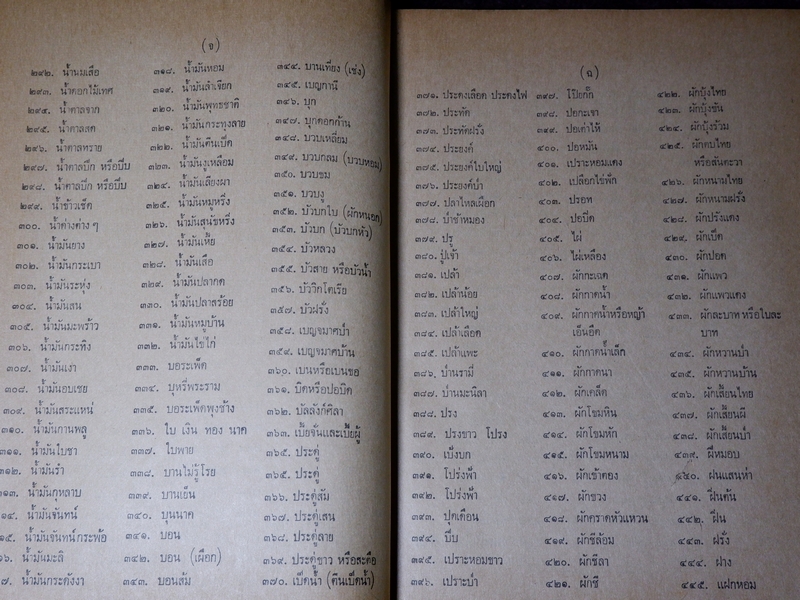 (ง)
๒๙๒. น้ำนมเสือ
๒๙๓. น้ำดอกไม้เทศ
๒๙๔. น้ำตาลจาก
๒๙๕. น้ำตาลสด
๒๙๖. น้ำตาลทราย
๒๙๗. น้ำตาลปึก หรือปีบ
๒๙๘. น้ำตาลปึก หรือปีบ
๒๙๙. น้ำข้าวเช็ด
๓๐๐. น้ำต่างต่าง ๆ
๓๐๑. น้ำมันยาง
๓๐๒. น้ำมันกระเบา
๓๐๓. น้ำมันระหุ่ง
๓๐๔. น้ำมันสน
๓๐๕. น้ำมันมะพร้าว
๓๐๖. น้ำมันกระทิง
๓๐๗. น้ำมันงา
๓๐๘. น้ำมันอบเชย
๓๐๙. น้ำมันสระแหน่
๓๑๐. น้ำมันกานพลู
๓๑๑. น้ำมันใบชา
๓๑๒. น้ำมันรำ
๓๑๓. น้ำมันกุหลาบ
๓๑๔. น้ำมันจันทน์
๓๑๕. น้ำมันจันทน์กระพ้อ
๓๑๖. น้ำมันมะลิ
๓๑๗. น้ำมันกระดังงา
๓๑๘. น้ำมันหอม
๓๑๙. น้ำมันลำเจียก
๓๒๐. น้ำมันพุทธชาติ
๓๒๑. น้ำมันกระทุงลาย
๓๒๒. น้ำมันตีนเป็ด
๓๒๓. น้ำมันงูเหลือม
๓๒๔. น้ำมันเลียงผา
๓๒๕. น้ำมันหมูหริ่ง
๓๒๖. น้ำมันสุนัขหริ่ง
๓๒๗. น้ำมันเหี้ย
๓๒๘. น้ำมันเสือ
๓๒๙. น้ำมันปลากด
๓๓๐. น้ำมันปลาสร้อย
๓๓๑. น้ำมันหมูบ้าน
๓๓๒. น้ำมันไข่ไก่
๓๓๓. บอระเพ็ด
๓๓๔. บุหรี่พระราม
๓๓๕. บอระเพ็ดพุงช้าง
๓๓๖. ใบ เงิน ทอง นาค
๓๓๗. ใบพาย
๓๓๘. บานไม่รู้โรย
๓๓๙. บานเย็น
๓๔๐. บุนนาค
๓๔๑. บอน
๓๔๒. บอน (เผือก)
๓๔๓. บอนส้ม
๓๔๔. บานเที่ยง (เช่ง)
๓๔๕. เบญกานี
๓๔๖. บุก
๓๔๗. บุกดอกก้าน
๓๔๘. บวบเหลี่ยม
๓๔๙. บวบกลม (บวบหอม)
๓๕๐. บวบขม
๓๕๑. บวบงู
๓๕๒. บัวบกใบ (ผักหนอก)
๓๕๓. บัวบก (บัวบกหัว)
๓๕๔. บัวหลวง
๓๕๕. บัวสาย หรือบัวน้ำ
๓๕๖. บัววิกโตเรีย
๓๕๗. บัวฝรั่ง
๓๕๘. เบญจมาศป่า
๓๕๙. เบญจมาศบ้าน
๓๖๐. เบนหรือเบนขอ
๓๖๑. บิดหรือปอบิด
๓๖๒. บัลลังก์ศิลา
๓๖๓. เบี้ยจั่นและเบี้ยผู้
๓๖๔. ประดู่
๓๖๕. ประดู่
๓๖๖. ประดู่ส้ม
๓๖๗. ประดู่เสน
๓๖๘. ประดู่ลาย
๓๖๙. ประดู่ขาว หรือสะตือ
๓๗๐. เป็ดน้ำ (ตีนเป็ดน้ำ)
(ฉ)
๓๗๑. ประดงเลือด ประดงไฟ
๓๗๒. ประทัด
๓๗๓. ประทัดฝรั่ง
๓๗๔. ประยงค์
๓๗๕. ประยงค์ใบใหญ่
๓๗๖. ประยงค์ป่า
๓๗๗. ปลาไหลเผือก
๓๗๘. ป่าช้าหมอง
๓๗๙. ปรู
๓๘๐. ปู่เจ้า
๓๘๑. เปล้า
๓๘๒. เปล้าน้อย
๓๘๓. เปล้าใหญ่
๓๘๔. เปล้าเลือด
๓๘๕. เปล้าแพะ
๓๘๖. ป่านรามี่
๓๘๗. ป่านมะนิลา
๓๘๘. ปรง
๓๘๙. ปรงขาว โปรง
๓๙๐. เบ้งบก
๓๙๑. โปร่งฟ้า
๓๙๒. โปร่งฟ้า
๓๙๓. ปุดเดือน
๓๙๔. ปีบ
๓๙๕. เปราะหอมขาว
๓๙๖. เปราะป่า
๓๙๗. โป๊ยกั๊ก
๓๙๘. ปอกะเจา
๓๙๙. ปอเต่าไห้
๔๐๐. ปอหมัน
๔๐๑. เปราะหอมแดง
๔๐๒. เปลือกไข่ฟัก
๔๐๓. ปรอท
๔๐๔. ปอบิด
๔๐๕. ไผ่
๔๐๖. ไผ่เหลือง
๔๐๗. ผักกะเฉด
๔๐๘. ผักกาดน้ำ
๔๐๙. ผักกาดน้ำหรือหญ้า
เอ็นยืด
๔๑๐. ผักกาดน้ำเล็ก
๔๑๑. ผักกาดนา
๔๑๒. ผักเค็ด
๔๑๓. ผักโขมหิน
๔๑๔. ผักโขมหัก
๔๑๕. ผักโขมหนาม
๔๑๖. ผักเข้าตอง
๔๑๗. ผักขวง
๔๑๘. ผักคราดหัวแหวน
๔๑๙. ผักชีล้อม
๔๒๐. ผักชีลา
๔๒๑. ผักชี
๔๒๒. ผักบุ้งไทย
๔๒๓. ผักบุ้งขัน
๔๒๔. ผักบุ้งร้วม
๔๒๕. ผักตบไทย
หรือสันตะวา
๔๒๖. ผักหนามไทย
๔๒๗. ผักหนามฝรั่ง
๔๒๘. ผักปรังแดง
๔๒๙. ผักเป็ด
๔๓๐. ผักปอด
๔๓๑. ผักแพว
๔๓๒. ผักแพวแดง
๔๓๓. ผักละบาท หรือใบละ
บาท
๔๓๔. ผักหวานป่า
๔๓๕. ผักหวานบ้าน
๔๓๖. ผักเสี้ยนไทย
๔๓๗. ผักเสี้ยนผี
๔๓๘. ผักเสี้ยนป่า
๔๓๙. ผีหมอบ
๔๔๐. ฝนแสนห่า
๔๔๑. ฝิ่นต้น
๔๔๒. ฝิ่น
๔๔๓. ฝรั่ง
๔๔๔. ฝาง
๔๔๕. แฝกหอม